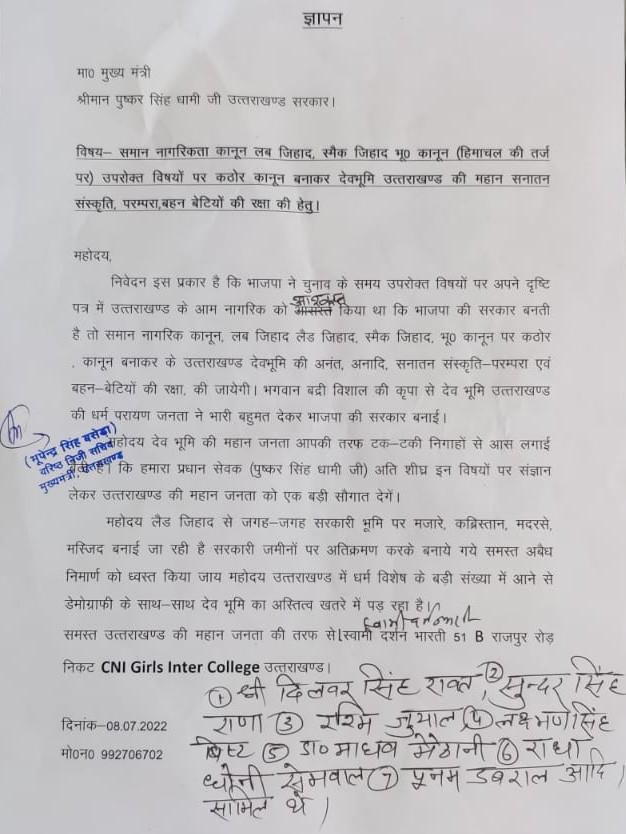 ज्ञापन
मा0 मुख्य मंत्री
श्रीमान पुष्कर सिंह धामी जी उत्तराखण्ड सरकार।
विषय– समान नागरिकता कानून लब जिहाद, स्मैक जिहाद भू0 कानून (हिमाचल की तर्ज
पर) उपरोक्त विषयों पर कठोर कानून बनाकर देवभूमि उत्तराखण्ड की महान सनातन
संस्कृति, परम्परा,बहन बेटियों की रक्षा की हेतु।
महोदय,
निवेदन इस प्रकार है कि भाजपा ने चुनाव के समय उपरोक्त विषयों पर अपने दृष्टि
पत्र में उत्तराखण्ड के आम नागरिक को आश्वस्त किया था कि भाजपा की सरकार बनती
है तो समान नागरिक कानून, लब जिहाद लैड जिहाद, स्मैक जिहाद, भू0 कानून पर कठोर
कानून बनाकर के उत्तराखण्ड देवभूमि की अनंत, अनादि, सनातन संस्कृति–परम्परा एवं
बहन–बेटियों की रक्षा, की जायेगी। भगवान बद्री विशाल की कृपा से देव भूमि उत्तराखण्ड
की धर्म परायण जनता ने भारी बहुमत देकर भाजपा की सरकार बनाई।
महोदय देव भूमि की महान जनता आपकी तरफ टक–टकी निगाहों से आस लगाई
है। कि हमारा प्रधान सेवक (पुष्कर सिंह धामी जी) अति शीघ्र इन विषयों पर संज्ञान
लेकर उत्तराखण्ड की महान जनता को एक बड़ी सौगात देगें।
(भूपेन्द्र सिंह बसेड़ा)
वरिष्ठ निजी सचिव
मुख्यमंत्री, उत्तराखण्ड
महोदय लैड जिहाद से जगह–जगह सरकारी भूमि पर मजारे, कब्रिस्तान, मदरसे,
मस्जिद बनाई जा रही है सरकारी जमीनों पर अतिक्रमण करके बनाये गये समस्त अबैध
निमार्ण को ध्वस्त किया जाय महोदय उत्तराखण्ड में धर्म विशेष के बड़ी संख्या में आने से
डेमोग्राफी के साथ–साथ देव भूमि का अस्तित्व खतरे में पड़ रहा है।
समस्त उत्तराखण्ड की महान जनता की तरफ से।स्वामी दर्शन भारती 51 B राजपुर रोड़
निकट CNI Girls Inter College उत्तराखण्ड।
① श्री दिलवर सिंह रावत, ② सुन्दर सिंह
दिनांक–08.07.2022 राणा ③ रश्मि जुयाल ④ लक्ष्मण सिंह
मो0न0 992706702 बिष्ट ⑤ डा० माधव मैठानी ⑥ राधा
धोनी सेमवाल ⑦ पूनम डबराल आदि
सामिल थे।